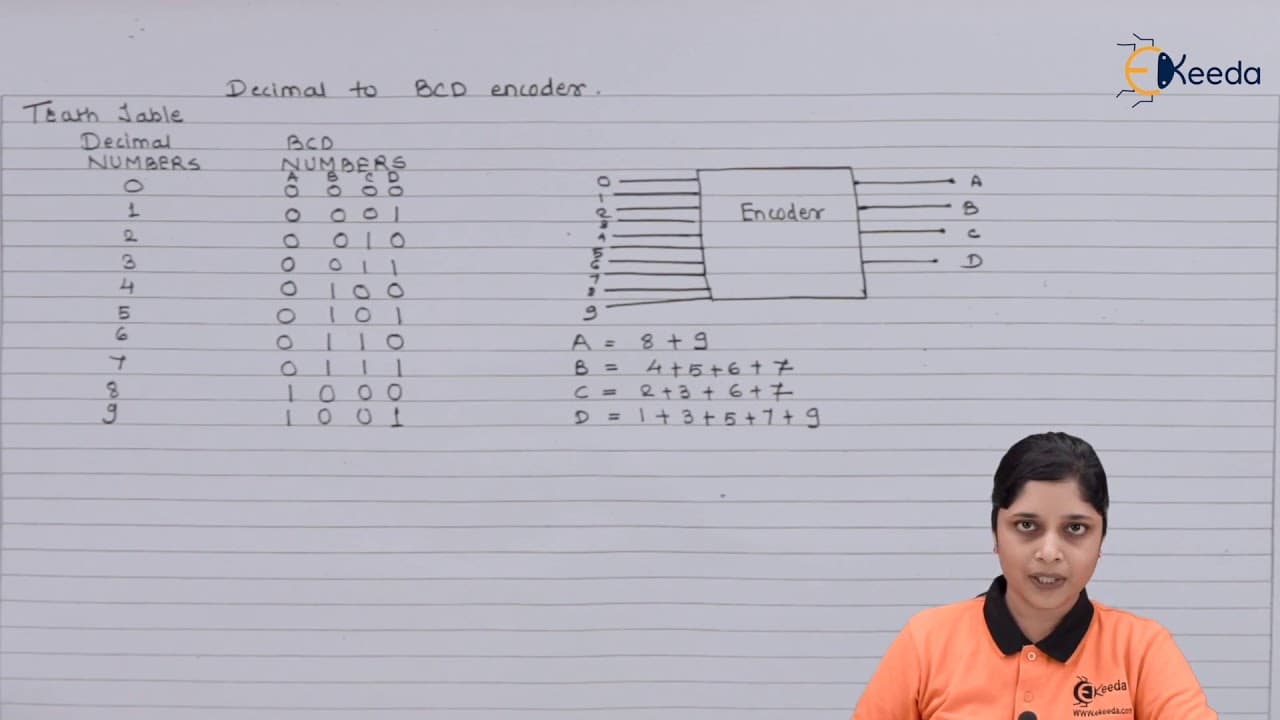 EKeeda
Decimal to BCD encoder.
Truth Table
Decimal BCD
NUMBERS NUMBERS
A B C D
0 0 0 0 0
1 0 0 0 1
2 0 0 1 0
3 0 0 1 1
4 0 1 0 0
5 0 1 0 1
6 0 1 1 0
7 0 1 1 1
8 1 0 0 0
9 1 0 0 1
0
1
2
3
4
5
6
7
8
9
Encoder
A
B
C
D
A = 8 + 9
B = 4 + 5 + 6 + 7
C = 2 + 3 + 6 + 7
D = 1 + 3 + 5 + 7 + 9
EKeeda
www.ekeeda.com